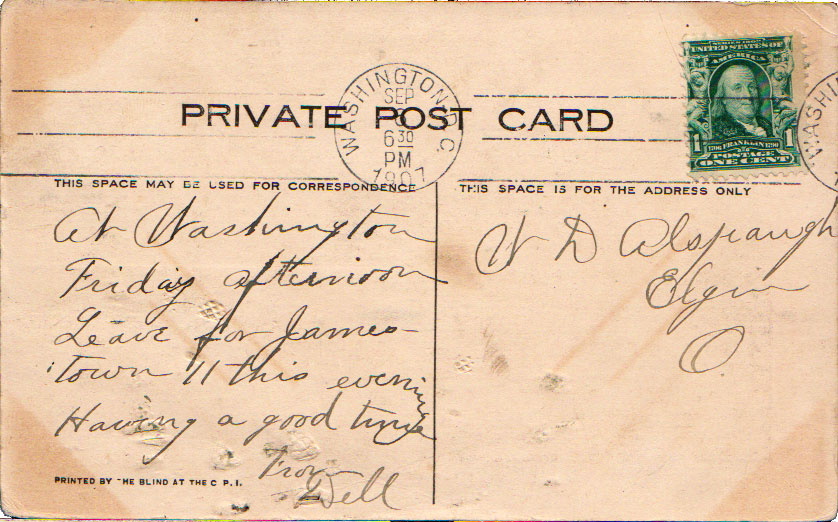 PRIVATE POST CARD
WASHINGTON, D.C.
SEP
6 30
PM
1907
SERIES 1902
UNITED STATES OF
AMERICA
1706 FRANKLIN 1790
1 1
POSTAGE
ONE CENT
WASHIN
THIS SPACE MAY BE USED FOR CORRESPONDENCE
THIS SPACE IS FOR THE ADDRESS ONLY
At Washington
Friday afternoon
Leave for James-
town 11 this evening
Having a good time
From
Dell
W D Alspaugh
Elgin
O
PRINTED BY THE BLIND AT THE C P. I.